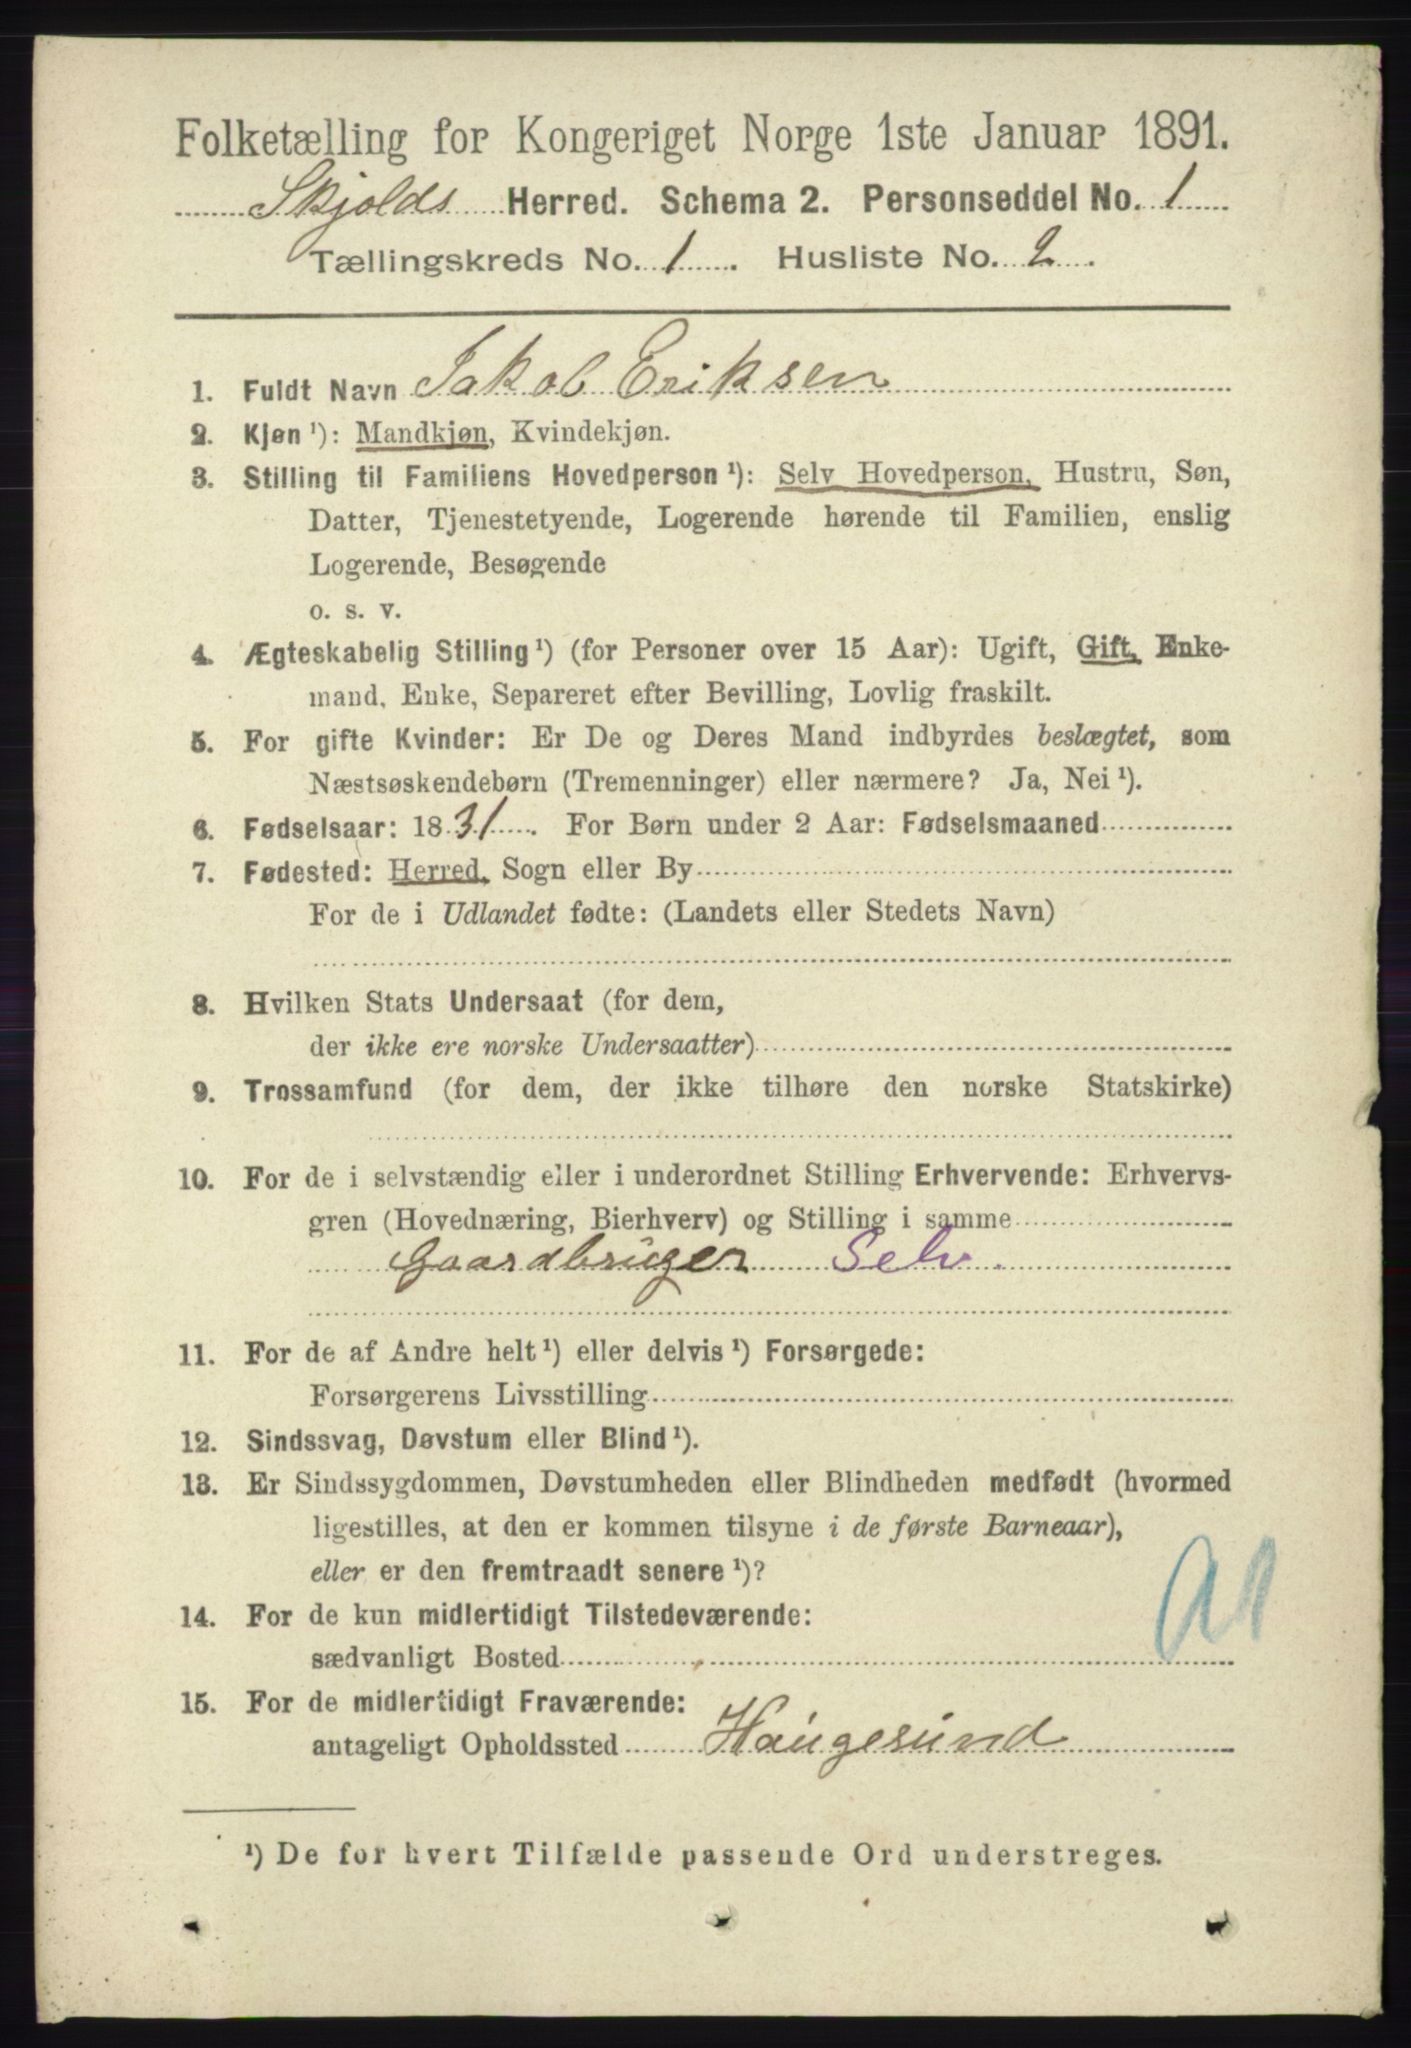 Folketælling for Kongeriget Norge 1ste Januar 1891.
Skjolds Herred. Schema 2. Personseddel No. 1
Tællingskreds No. 1. Husliste No. 2.
1. Fuldt Navn Jakob Eriksen
2. Kjøn ¹): Mandkjøn, Kvindekjøn.
3. Stilling til Familiens Hovedperson ¹): Selv Hovedperson, Hustru, Søn,
Datter, Tjenestetyende, Logerende hørende til Familien, enslig
Logerende, Besøgende
o. s. v.
4. Ægteskabelig Stilling ¹) (for Personer over 15 Aar): Ugift, Gift, Enke-
mand, Enke, Separeret efter Bevilling, Lovlig fraskilt.
5. For gifte Kvinder: Er De og Deres Mand indbyrdes beslægtet, som
Næstsøskendebørn (Tremenninger) eller nærmere? Ja, Nei ¹).
6. Fødselsaar: 1831. For Børn under 2 Aar: Fødselsmaaned
7. Fødested: Herred, Sogn eller By
For de i Udlandet fødte: (Landets eller Stedets Navn)
8. Hvilken Stats Undersaat (for dem,
der ikke ere norske Undersaatter)
9. Trossamfund (for dem, der ikke tilhøre den norske Statskirke)
10. For de i selvstændig eller i underordnet Stilling Erhvervende: Erhvervs-
gren (Hovednæring, Bierhverv) og Stilling i samme
Gaardbruger Selv.
11. For de af Andre helt ¹) eller delvis ¹) Forsørgede:
Forsørgerens Livsstilling
12. Sindssvag, Døvstum eller Blind ¹).
13. Er Sindssygdommen, Døvstumheden eller Blindheden medfødt (hvormed
ligestilles, at den er kommen tilsyne i de første Barneaar),
eller er den fremtraadt senere ¹)?
14. For de kun midlertidigt Tilstedeværende:
sædvanligt Bosted
15. For de midlertidigt Fraværende:
antageligt Opholdssted Haugesund
¹) De for hvert Tilfælde passende Ord understreges.